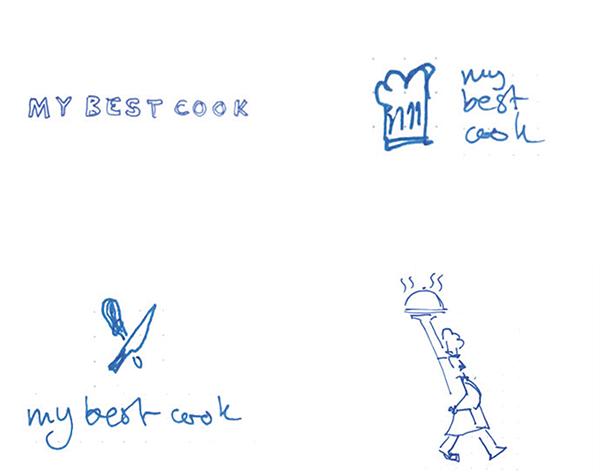 MY BEST COOK
my
best
cook
my best cook